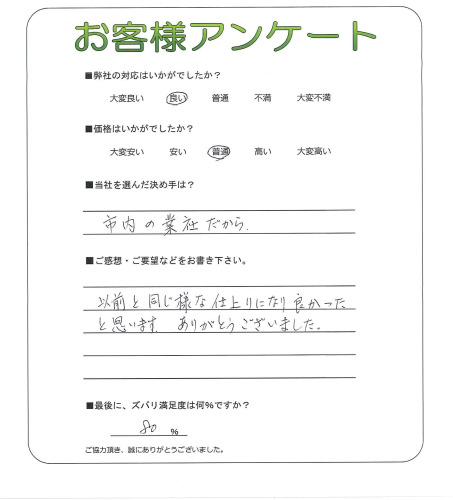 お客様アンケート
■弊社の対応はいかがでしたか？
大変良い 良い 普通 不満 大変不満
■価格はいかがでしたか？
大変安い 安い 普通 高い 大変高い
■当社を選んだ決め手は？
市内の業社だから.
■ご感想・ご要望などをお書き下さい。
以前と同じ様な仕上りになり良かった
と思います. ありがとうございました。
■最後に、ズバリ満足度は何%ですか？
80 %
ご協力頂き、誠にありがとうございました。